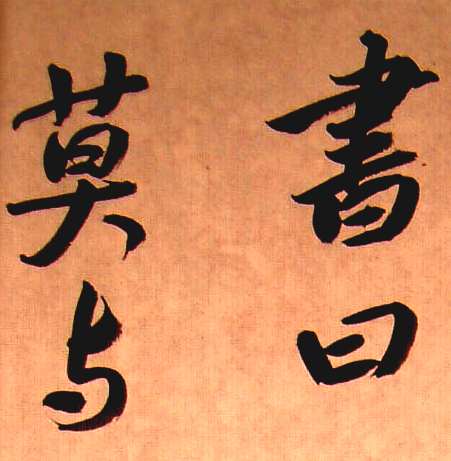 書曰
莫与